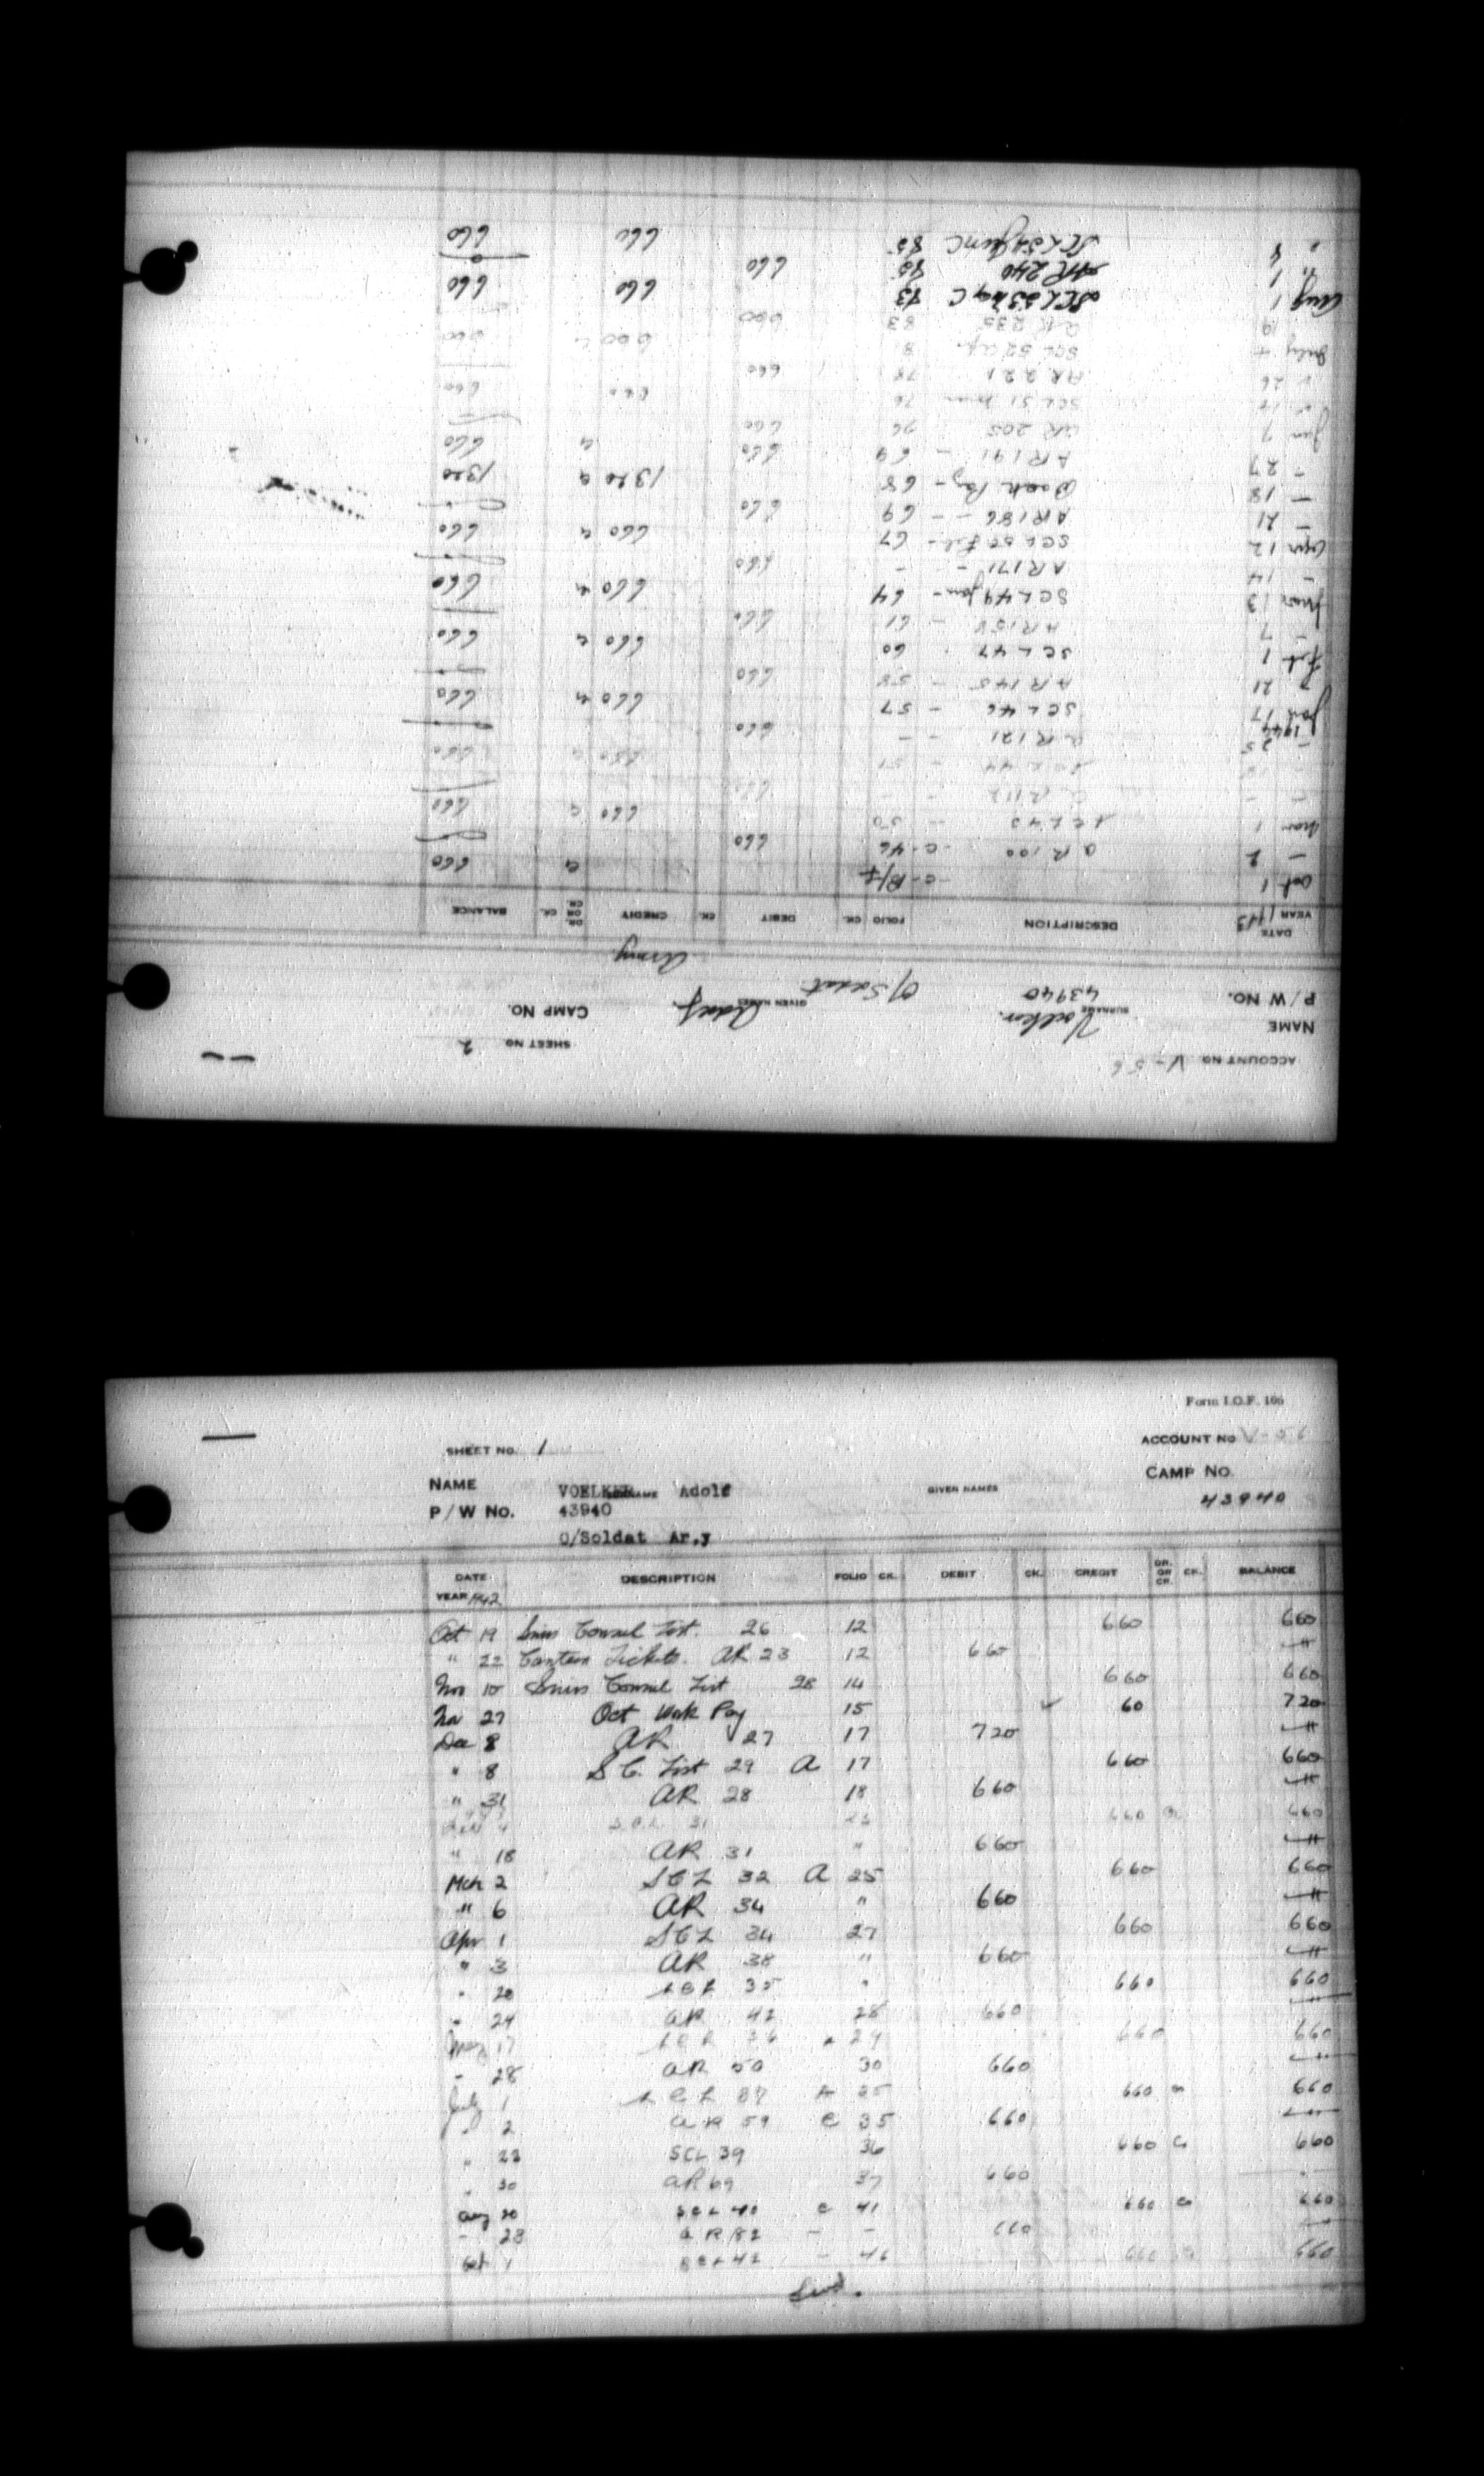 ACCOUNT NO. V-56
SHEET NO. 2
NAME Voelker. SURNAME Adolf GIVEN NAMES CAMP NO.
P/W NO. 43940 O/Soldat Army
DATE YEAR 1943 DESCRIPTION FOLIO CK. DEBIT CK. CREDIT DR. OR CR. CK. BALANCE
Oct 1 - C - B/f 660
- 2 A R 100 - C - 46 660
Nov 1 S C L 43 - 50 660 660
- - A R 112 - -
S C L 44 - 51 660 660
- 25 A R 121 - - 660
1944
Jan 17 S C L 46 - 57 660 660
" 21 A R 145 - 58 660
Feb 1 S C L 47 60 660 660
- 7 A R 158 - 61 660
Mar 13 SCL 49 Jan - 64 660 660
- 14 A R 171 - - 660
Apr 12 SCL 50 Feb - 67 660 660
- 21 A R 186 - - 69 660
- 18 Work Pay - 68 1320 1320
- 27 A R 191 - 69 660 660
Jun 7 A R 205 76 660
SCL 51 Mar 76 660 660
" 26 A R 221 78 660
July SCL 52 Ap. 660 660
19 A R 235 83 660
Aug 1 SCL 53 660 660
" 1 AR 240 85 660
" 8 SCL 54 June C 85 660 660
Form I.O.F. 106
SHEET NO. 1 ACCOUNT NO V-56
NAME VOELKER SURNAME Adolf GIVEN NAMES CAMP NO.
P/W No. 43940 43940
O/Soldat Ar,y
DATE YEAR 1942 DESCRIPTION FOLIO CK. DEBIT CK. CREDIT DR. OR CR. CK. BALANCE
Oct 19 Swiss Consul List. 26 12 660 660
" 22 Canteen Tickets. AR 23 12 660
Nov 10 Swiss Consul List 28 14 660 660
Nov 27 Oct Work Pay 15 60 720
Dec 8 AR 27 17 720
" 8 S C. List 29 A 17 660 660
" 31 AR 28 18 660
S C L 31 660 660
" 18 AR 31 " 660
Mch 2 S C L 32 A 25 660 660
" 6 AR 34 " 660
Apr 1 S C L 34 27 660 660
" 3 AR 38 " 660
" 20 S C L 35 " 660 660
" 24 AR 42 28 660
May 17 S C L 36 29 660 660
- 28 AR 50 30 660
July 1 S C L 660 660
" 2 AR 59 C 35 660
" 23 SCL 39 36 660 660
" 30 AR 69 37 660
Aug 20 SCL 40 C 41 660 660
- 28 A R 82 - - 660
Oct 1 SCL 42 - 46 660 660